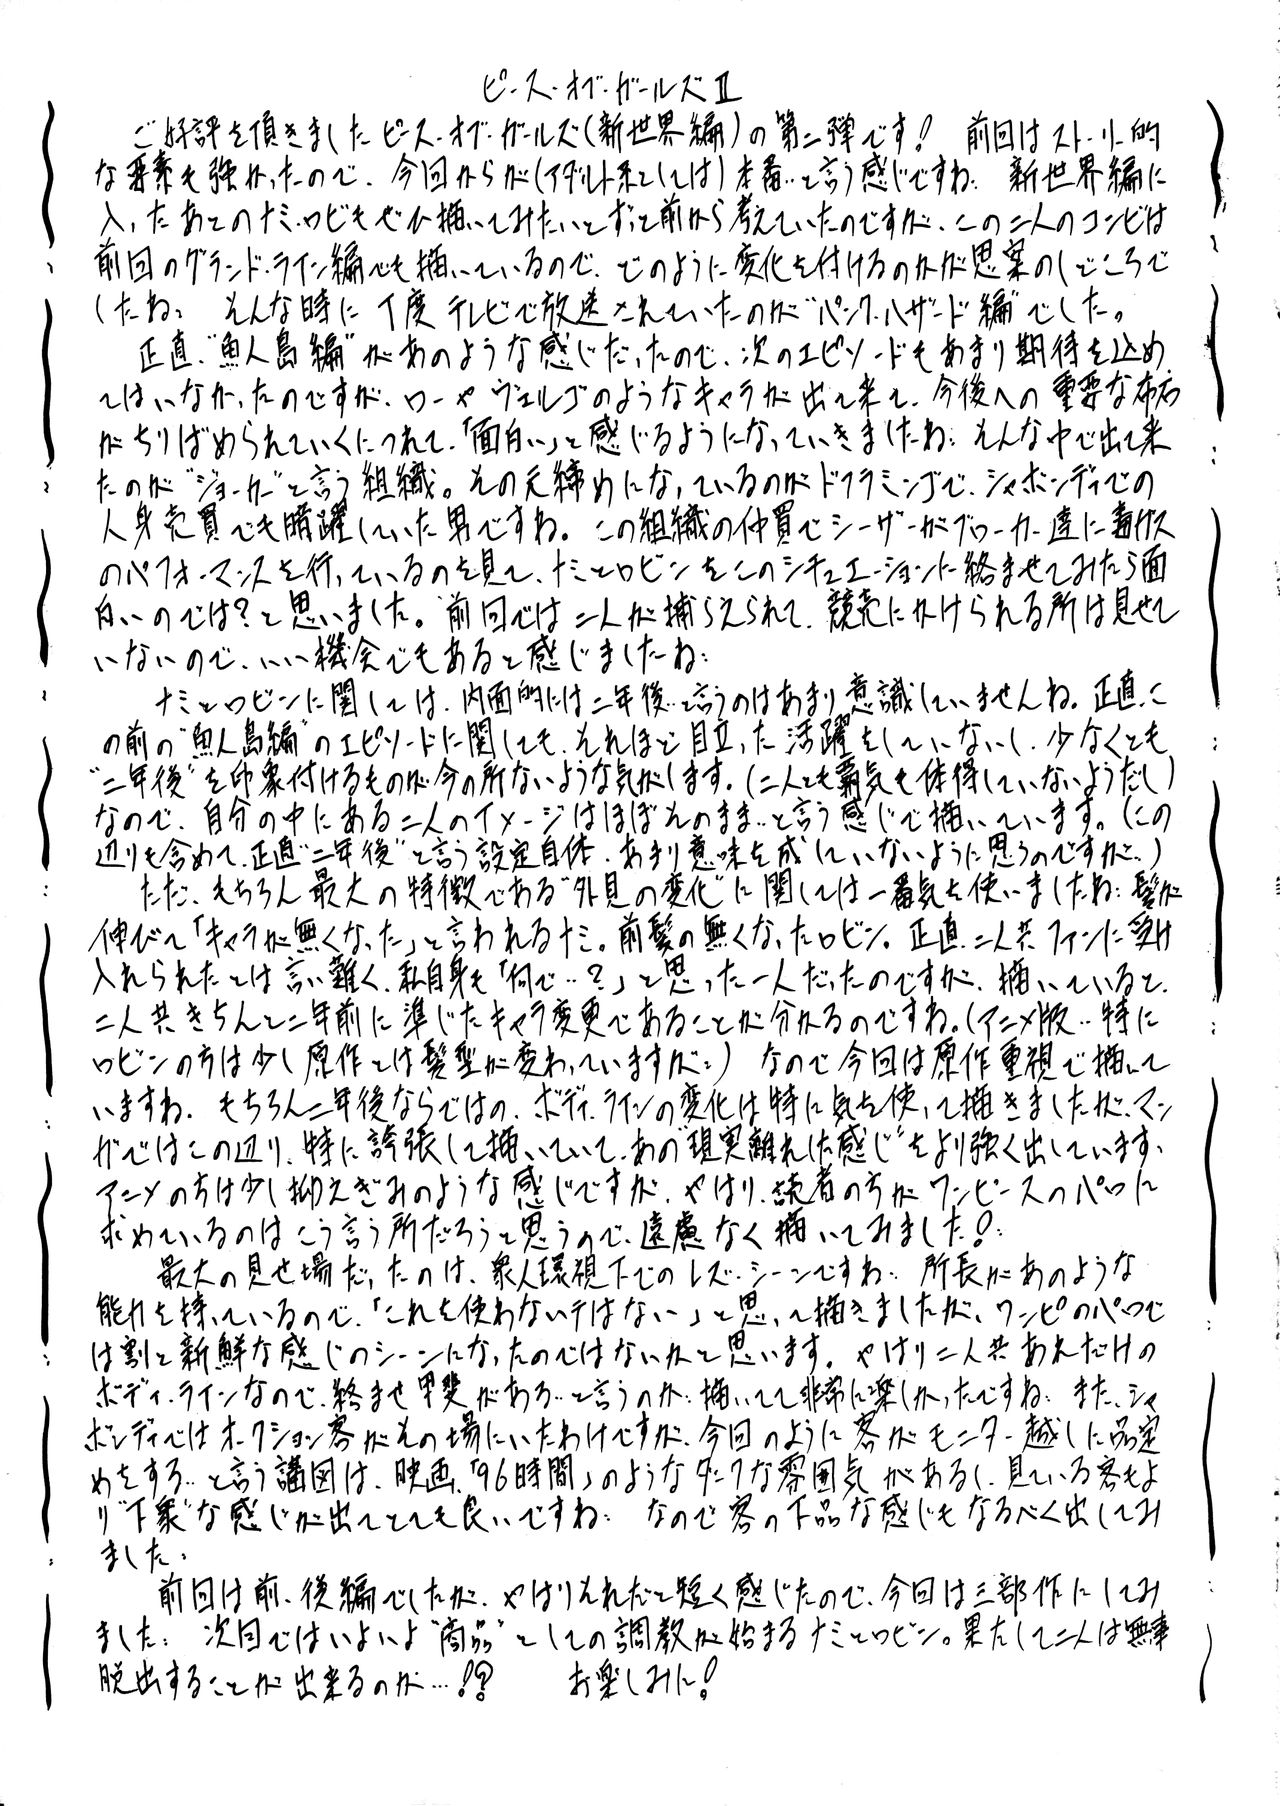 ピース・オブ・ガールズⅡ
ご好評を頂きましたピース・オブ・ガールズ(新世界編)の第二弾です! 前回はストーリー的
な要素も強かったので、今回からが(アダルト系としては)本番‥と言う感じですね‥ 新世界編に
入ったあとのナミ・ロビもぜひ描いてみたいとずっと前から考えていたのですが、この二人のコンビは
前回のグランド・ライン編でも描いているので、どのように変化を付けるのかが思案のしどころで
したね‥ そんな時に丁度テレビで放送されていたのが“パンク・ハザード編”でした。
正直、“魚人島編”があのような感じだったので、次のエピソードもあまり期待を込め
てはいなかったのですが、ローやヴェルゴのようなキャラが出て来て、今後への重要な布石
がちりばめられていくにつれて、「面白い」と感じるようになっていきましたね‥ そんな中で出て来
たのが“ジョーカー”と言う組織。その元締めになっているのがドフラミンゴで、シャボンディでの
人身売買でも暗躍していた男ですね。この組織の仲買でシーザーがブローカー達に毒ガス
のパフォーマンスを行っているのを見て、ナミとロビンをこのシチュエーションに絡ませてみたら面
白いのでは?と思いました。前回では二人が捕らえられて、競売にかけられる所は見せて
いないので、いい機会でもあると感じましたね‥
ナミとロビンに関しては、内面的には二年後‥と言うのはあまり意識していませんね。正直、こ
の前の“魚人島編”のエピソードに関しても、それほど目立った活躍をしていないし、少なくとも
“二年後”を印象付けるものが今の所ないような気がします。(二人とも覇気も体得していないようだし)
なので、自分の中にある二人のイメージはほぼそのまま‥と言う感じで描いています。(この
辺りも含めて、正直“二年後”と言う設定自体、あまり意味を成していないように思うのですが‥)
ただ、もちろん最大の特徴である“外見の変化”に関しては一番気を使いましたね‥髪が
伸びて「キャラが無くなった」と言われるナミ。前髪の無くなったロビン。正直、二人共ファンに受け
入れられたとは言い難く、私自身も「何で‥?」と思った一人だったのですが、描いていると、
二人共きちんと二年前に準じたキャラ変更であることが分かるのですね。(アニメ版‥特に
ロビンの方は少し原作とは髪型が変わっていますが‥) なので今回は原作重視で描いて
いますね。もちろん二年後ならではの、ボディ・ラインの変化は特に気を使って描きましたが、マン
ガではこの辺り、特に誇張して描いていて、あの“現実離れした感じ”をより強く出しています。
アニメの方は少し抑えぎみのような感じですが、やはり、読者の方がワンピースのパロに
求めているのはこう言う所だろうと思うので、遠慮なく描いてみました!
最大の見せ場だったのは、衆人環視下でのレズ・シーンですね‥ 所長があのような
能力を持っているので、「これを使わないテはない」と思って描きましたが、ワンピのパロで
は割と新鮮な感じのシーンになったのではないかと思います。やはり二人共あれだけの
ボディ・ラインなので、絡ませ甲斐がある‥と言うのか‥描いてて非常に楽しかったですね‥ また、シャ
ボンディではオークション客がその場にいたわけですが、今回のように客がモニター越しに品定
めをする‥と言う講図は、映画、「96時間」のようなダークな雰囲気があるし、見ている客もよ
り“下衆”な感じが出てとても良いですね‥ なので客の下品な感じもなるべく出してみ
ました。
前回は前、後編でしたが、やはりそれだと短く感じたので、今回は三部作にしてみ
ました‥ 次回ではいよいよ“商品”としての調教が始まるナミとロビン。果たして二人は無事
脱出することが出来るのか…!? お楽しみに!